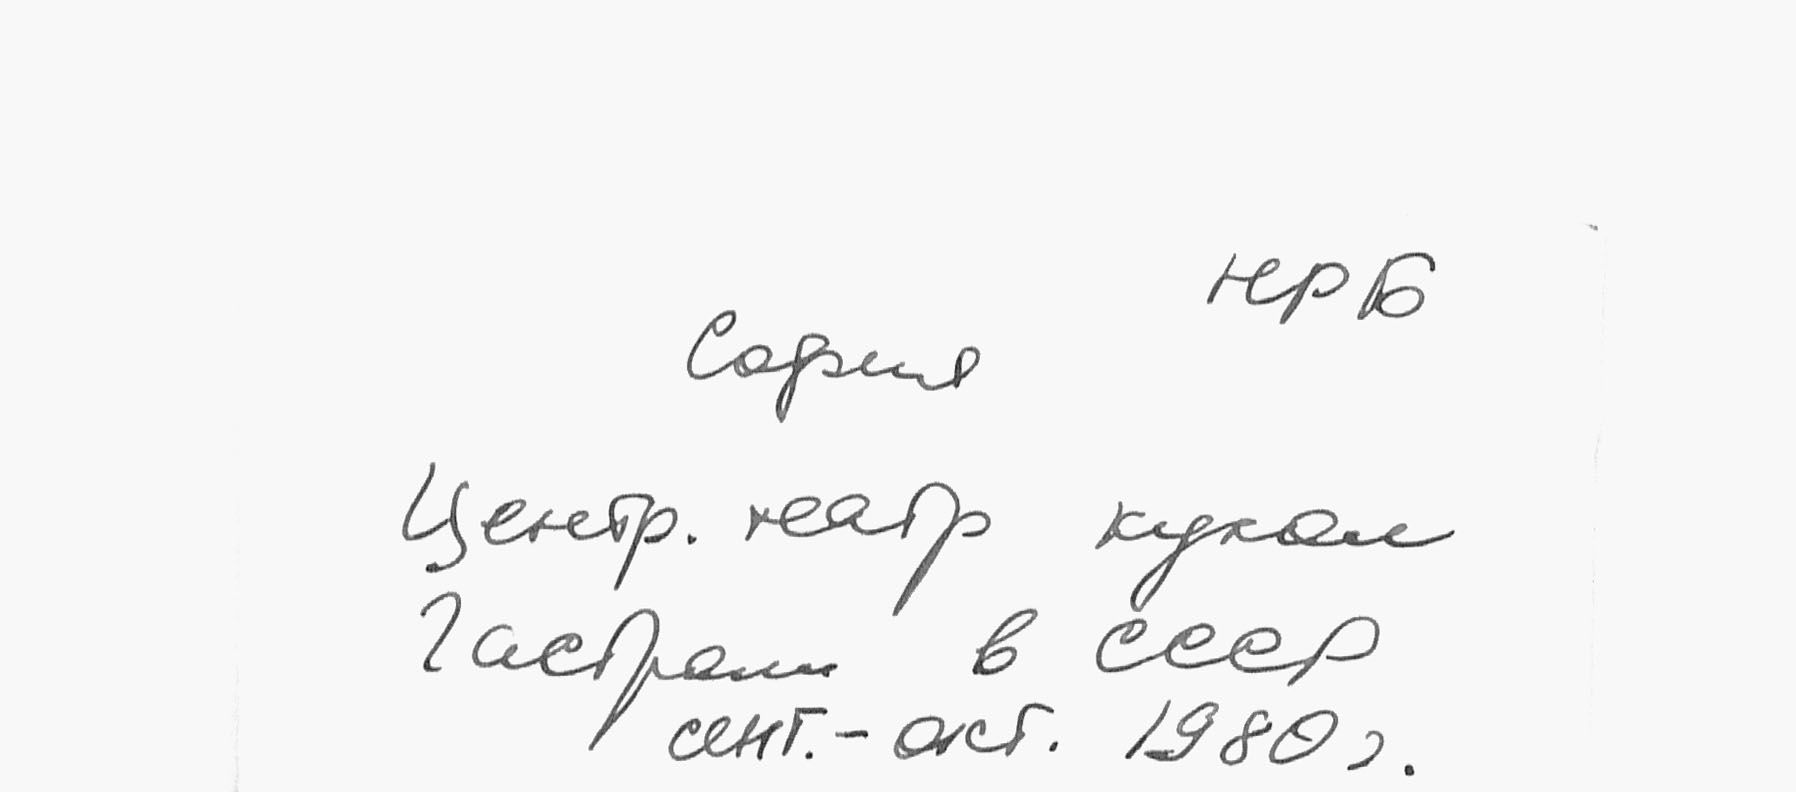 НРБ
София
Центр. театр кукол
Гастроли в СССР
сент.-окт. 1980 г.